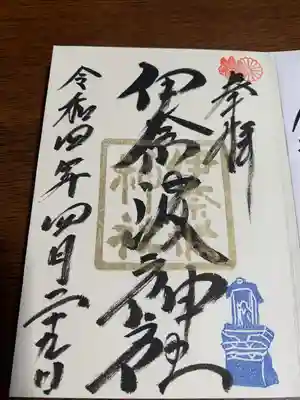 奉拝
伊奈波神社
伊奈波
神社
令和四年四月二十九日